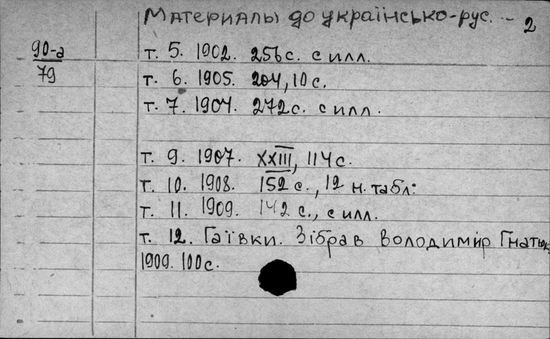 Материалы до українсько-рус. - 2
90-а
79
т. 5. 1902. 256 с. с илл.
т. 6. 1905. 204, 10 с.
т. 7. 1904. 272 с. с илл.
т. 9. 1907. XXIII, 114 с.
т. 10. 1908. 152 с., 12 н. табл:
т. 11. 1909. 142 с., с илл.
т. 12. Гаївки. Зібрав Володимир Гнатюк
1909. 100 с.